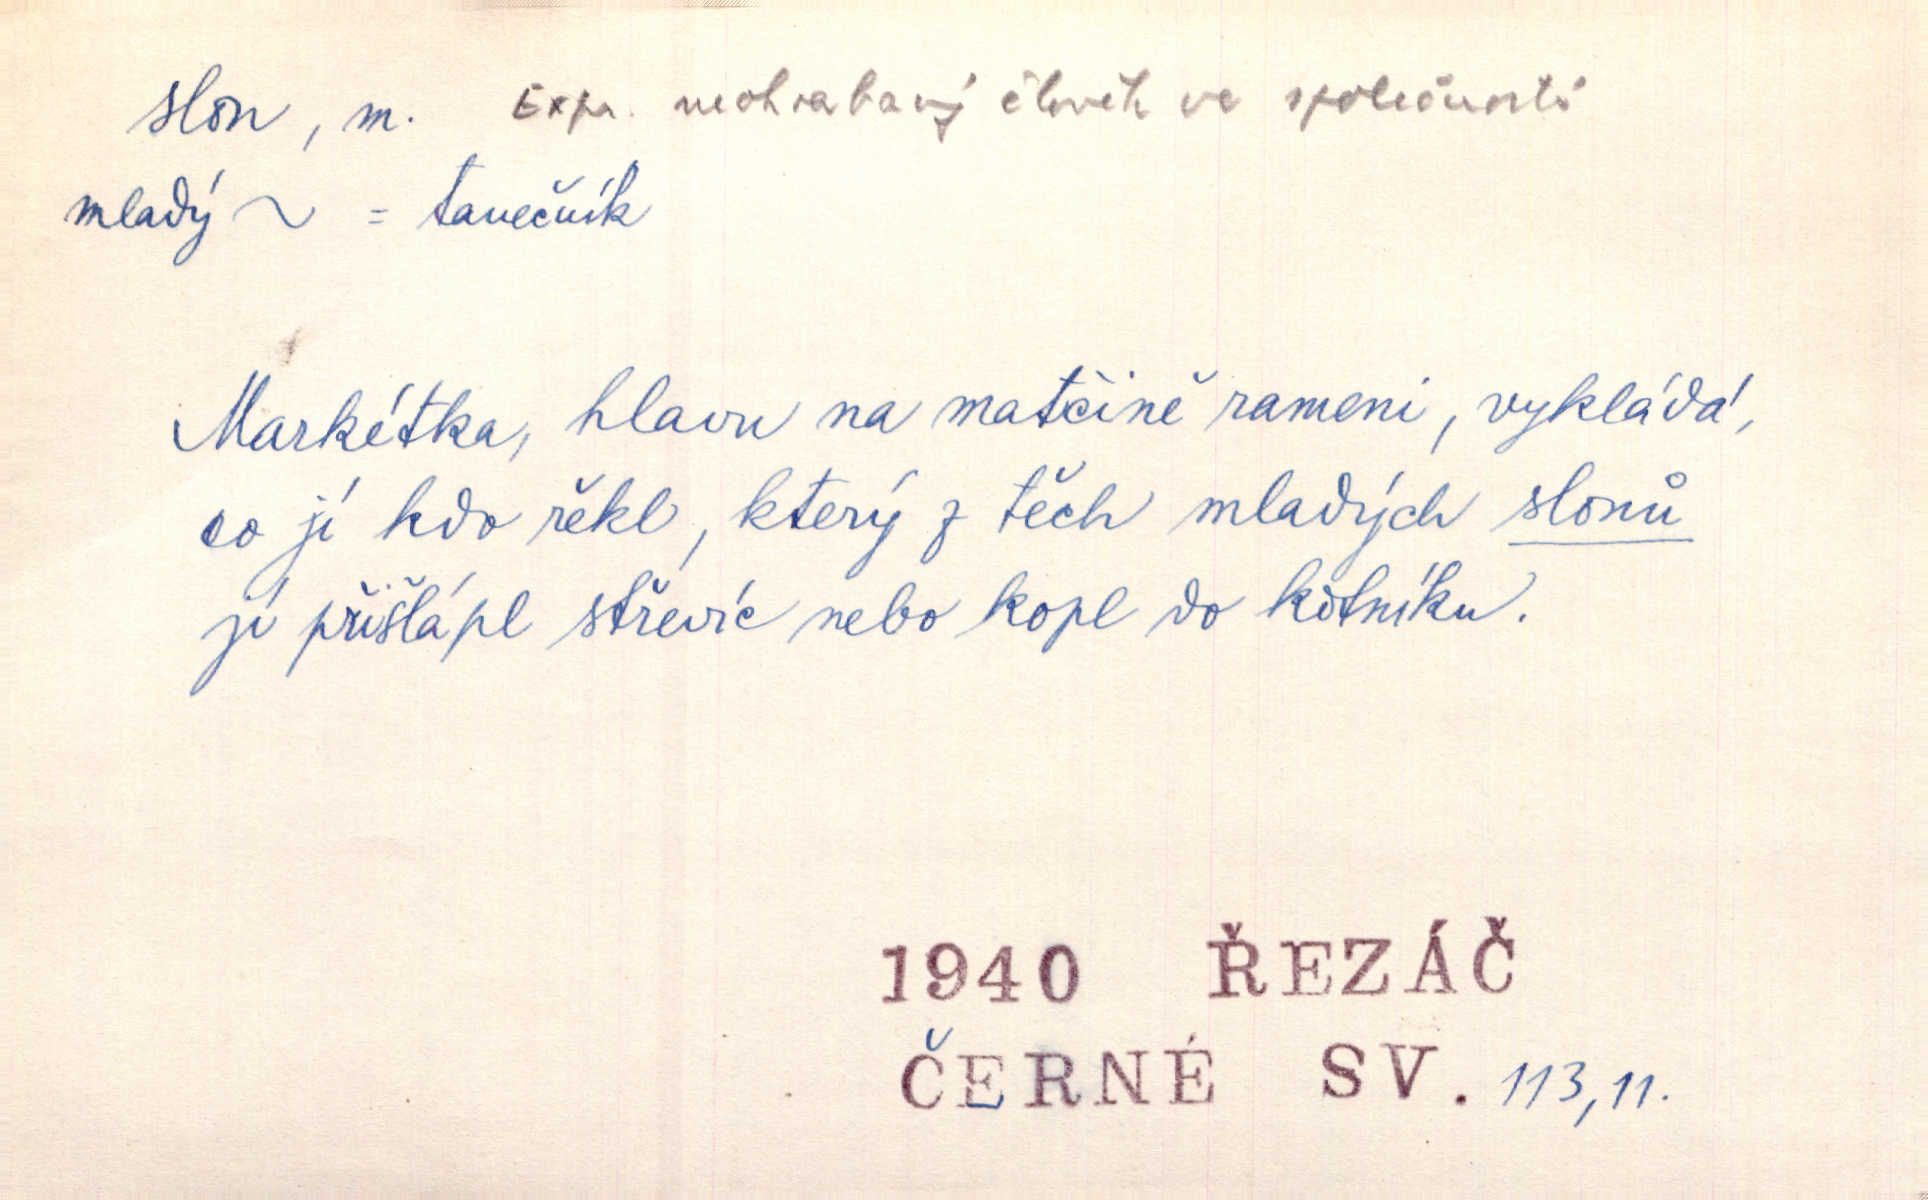 slon, m. Expr. neohrabaný člověk ve společnosti
mladý ~ = tanečník
Markétka, hlavu na matčině rameni, vykládá,
co jí kdo řekl, který z těch mladých slonů
jí přišlápl střevíc nebo kopl do kotníku.
1940 ŘEZÁČ
ČERNÉ SV. 113,11.